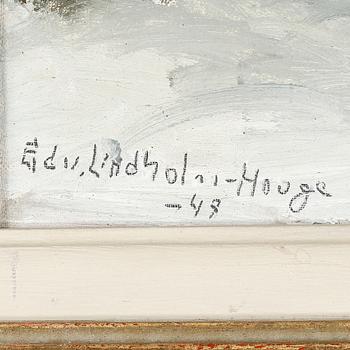 Edv. Lindholm-Hooge
-48